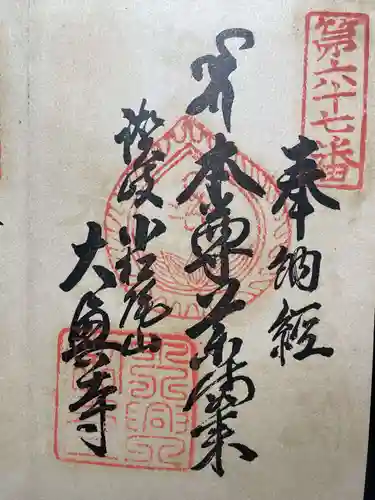 第六十七番
奉納経
本尊薬師如来
讃岐小松尾山
大興寺